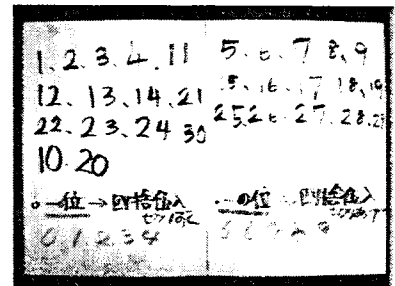 1.2.3.4.11
12.13.14.21
22.23.24 30
10.20
。一位→四捨五入
0.1.2.3.4
5.6.7 8.9
15.16.17 18.19
25.26.27.28.29
・一の位 四捨五入